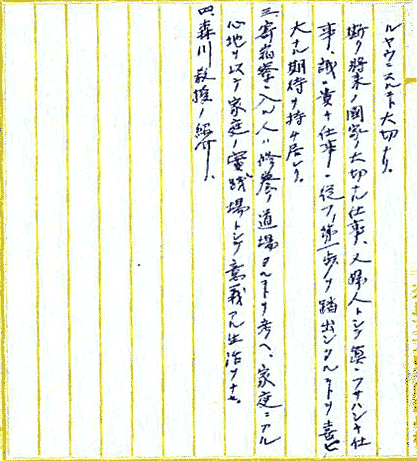 ルヤウニスルコト大切ナリ。
斯ク将来ノ國家ノ大切ナル仕事、又婦人トシテ眞ニフサハシキ仕
事、誠ニ貴キ仕事ニ從フノ第一歩ヲ踏出シタルコトヲ喜ビ
大ナル期待ヲ持チ居レリ。
三、寄宿寮ニ入ル人ハ修養ノ道場タルコトヲ考ヘ、家庭ニアル
心地ヲ以テ家庭ノ實践場トシテ意義アル生活ヲナセ。
四、森川教授ノ紹介。